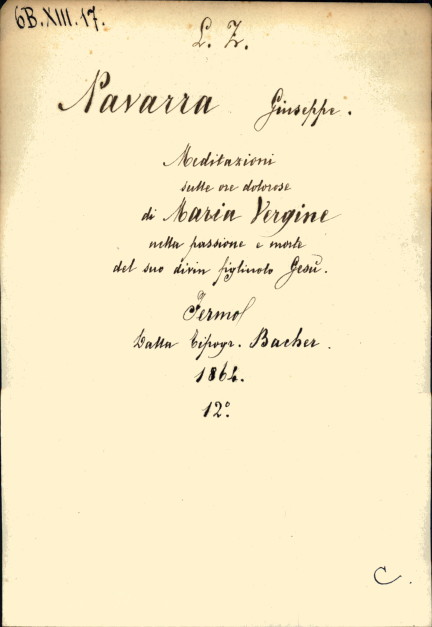 6B.XIII.17.
L. Z.
Navarra Giuseppe.
Meditazioni
sulle ore dolorose
di Maria Vergine
nella passione e morte
del suo divin figliuolo Gesù.
Fermo
Dalla Tipogr. Bacher.
1864.
12°.
C.